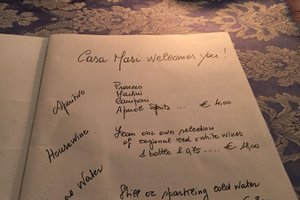 Casa Masi welcomes you!
Aperitivo
Prosecco
Martini
Campari
Aperol Spritz ... € 4,00
Housewine
from our own selection
of regional red & white wines
1 bottle l. 0,75 .... €
Water
Still or sparkling cold water